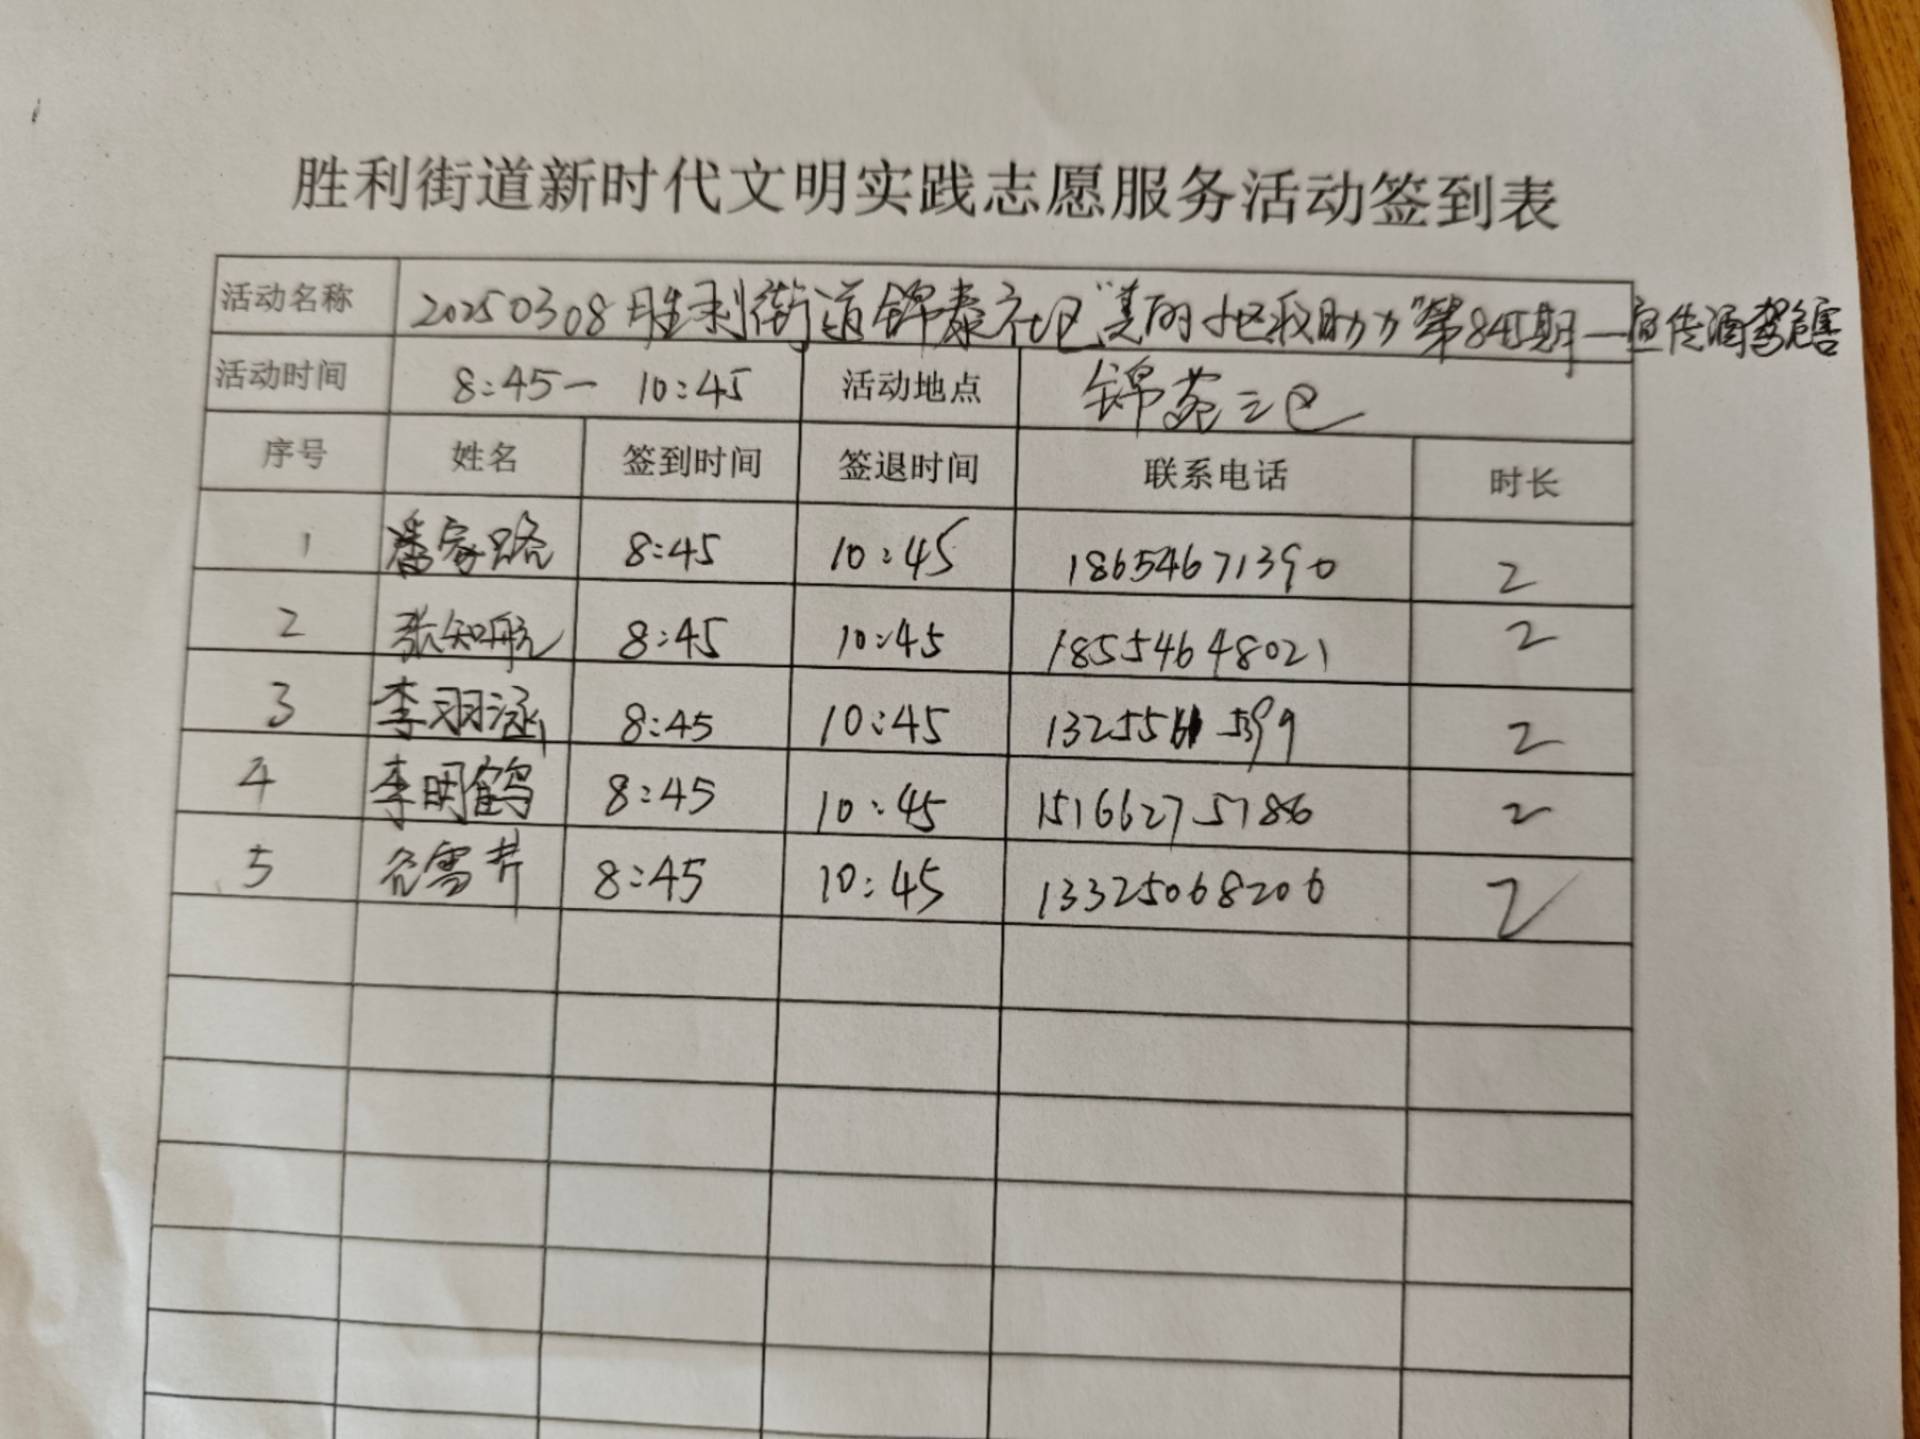 胜利街道新时代文明实践志愿服务活动签到表
活动名称 20250308胜利街道锦泰社区"美丽小区我助力"第84期—宣传酒驾危害
活动时间 8:45— 10:45 活动地点 锦苑三区
序号 姓名 签到时间 签退时间 联系电话 时长
1 潘家路 8:45 10:45 18654671390 2
2 张知航 8:45 10:45 18554648021 2
3 李羽涵 8:45 10:45 2
4 李明鹤 8:45 10:45 15166275786 2
5 8:45 10:45 13325068206 2